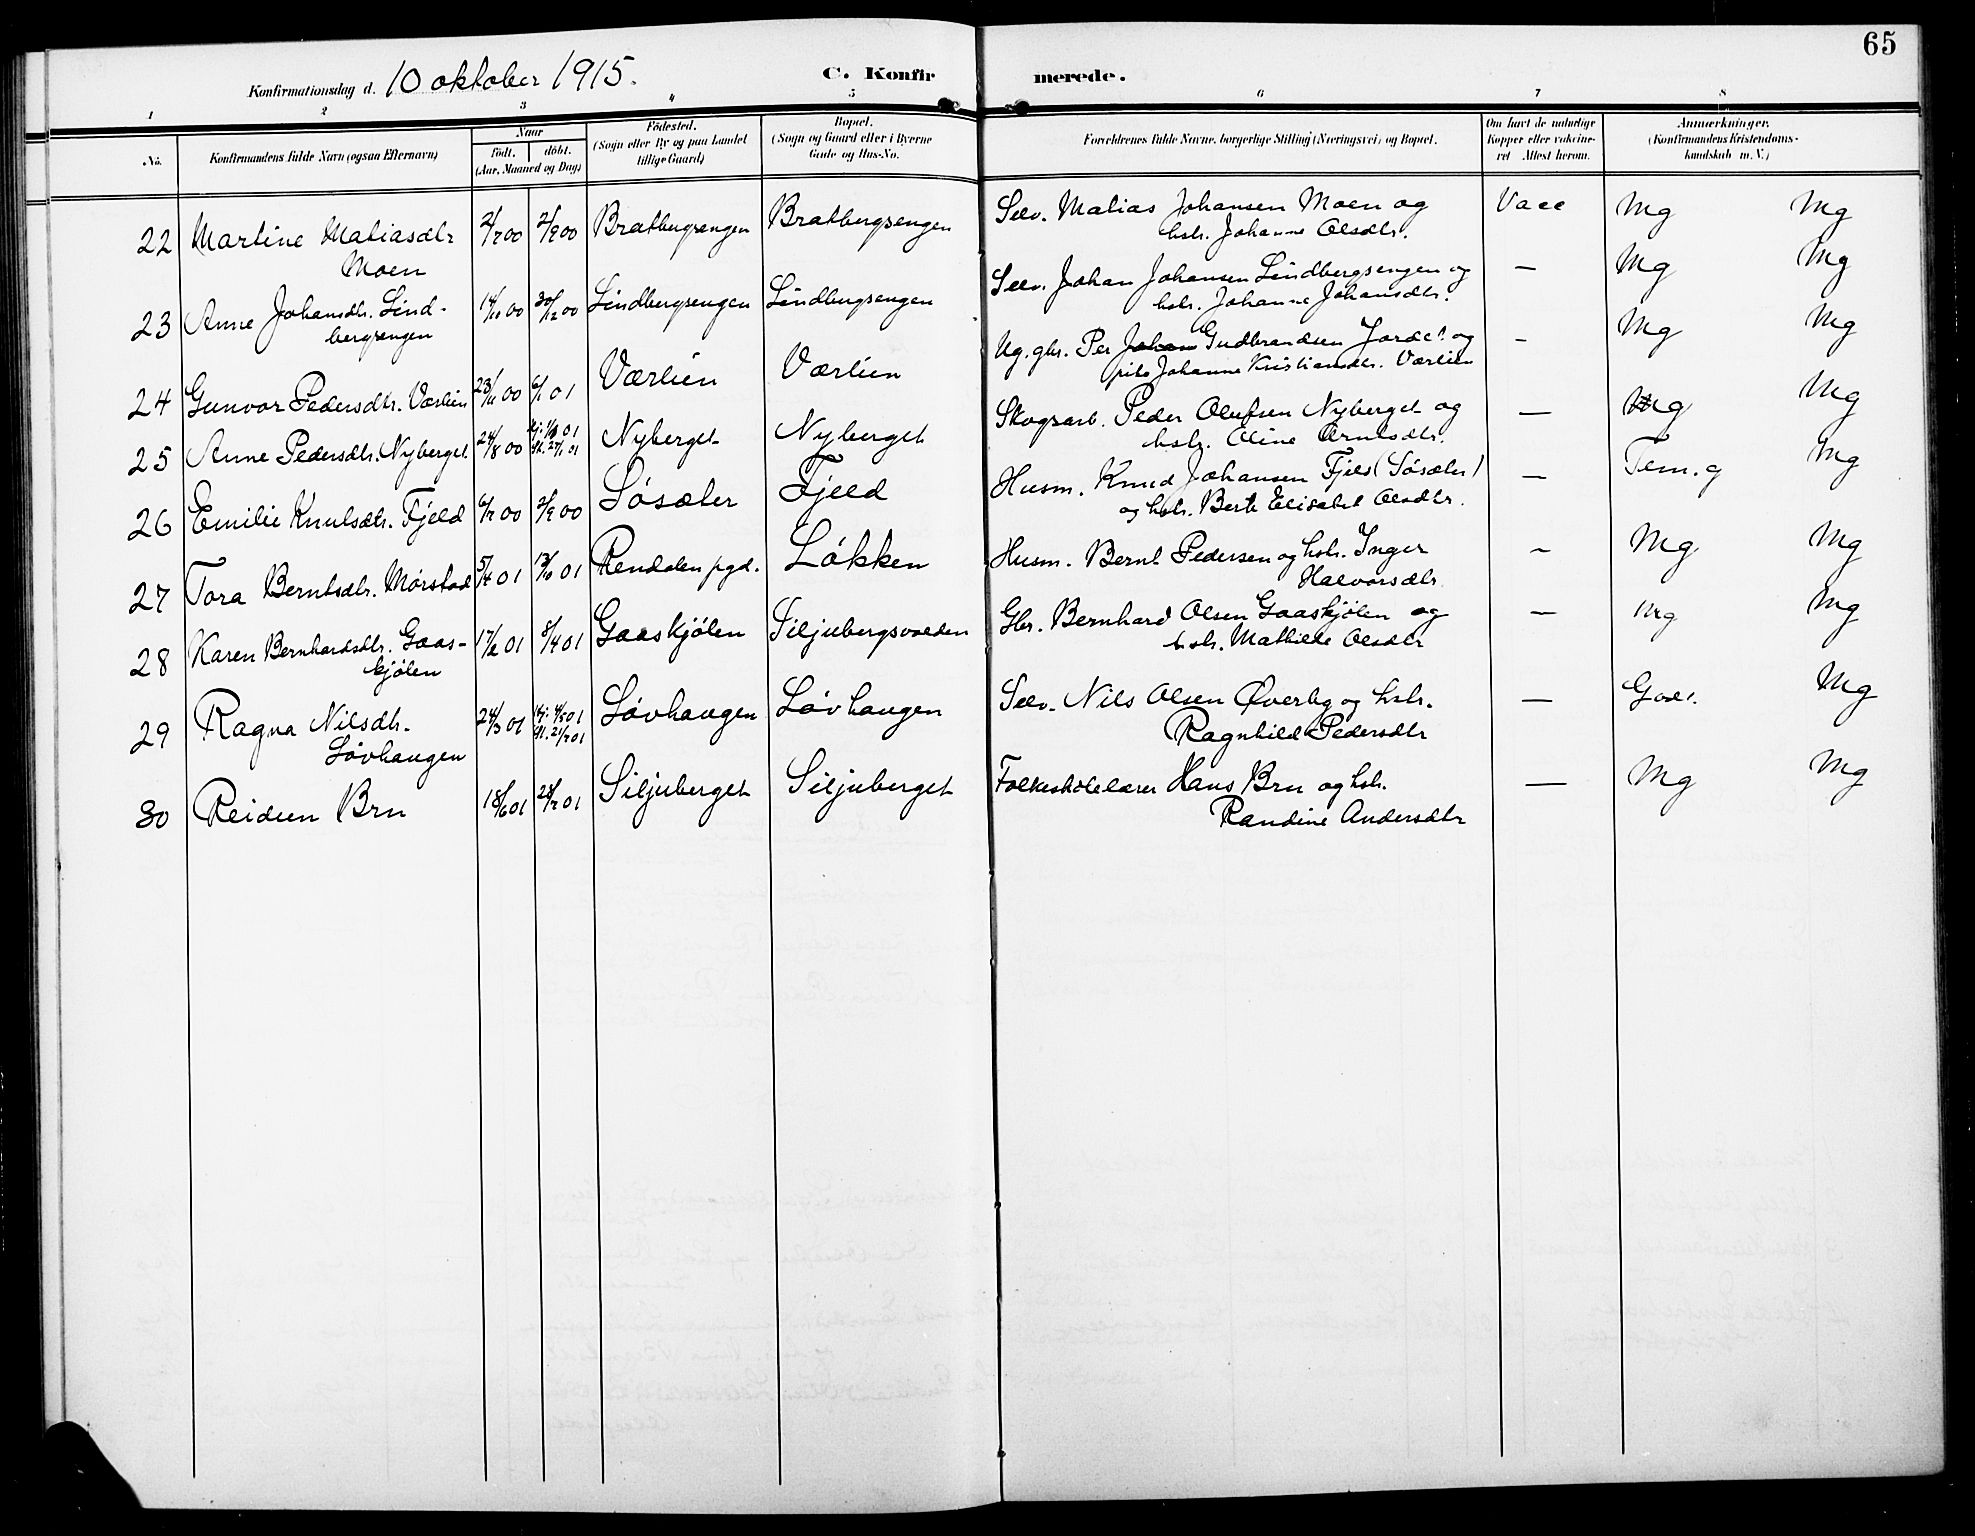 65
Konfirmationsdag d. 10 oktober 1915.
C. Konfirmerede.
1 2 3 4 5 6 7 8
No. Konfirmandens fulde Navn (ogsaa Efternavn) Naar født. døbt. (Aar, Maaned og Dag) Fødested. (Sogn eller By og paa Landet tillige Gaard) Bopæl. (Sogn og Gaard eller i Byerne Gade og Hus-No. Forældrenes fulde Navne, borgerlige Stilling (Næringsvei) og Bopæl. Om havt de naturlige Kopper eller vakcineret Attest herom. Anmærkninger. (Konfirmandens Kristendomskundskab m. V.)
22 Martine Matiasdtr 2/7 00 2/9 00 Bratbergsengen Bratbergsengen Selv. Matias Johansen Moen og Vacc Mg Mg
Moen hstr. Johanne Olsdtr.
23 Anne Johansdtr. Lind- 14/10 00 30/12 00 Lindbergsengen Lindbergsengen Selv. Johan Johansen Lindbergsengen og — Mg Mg
bergsengen hstr. Johanne Johansdtr.
24 Gunvor Pedersdtr. Værlien 23/11 00 6/1 01 Værlien Værlien Ug. gbr. Per Johan Gudbrandsen Jordet og - Mg Mg
pike Johanne Kristiansdtr. Værlien
25 Anne Pedersdtr. Nyberget 24/8 00 27/1 01 Nyberget Nyberget Skogsarb. Peder Olufsen Nyberget og — Mg Mg
hstr. Oline Arntsdtr.
26 Emilie Knutsdtr. Fjeld 6/7 00 2/9 00 Løsæter Fjeld Husm. Knud Johansen Fjeld (Løsæter) — Tem. g Mg
og hstr. Berte Elisabet Olsdtr.
27 Tora Berntsdtr. Mørstad 5/4 01 13/10 01 Rendalen pgd. Løkken Husm. Bernt Pedersen og hstr. Inger - Mg Mg
Halvorsdtr.
28 Karen Bernhardsdtr. Gaas- 17/2 01 8/4 01 Gaaskjølen Siljubergsvolden Gbr. Bernhard Olsen Gaaskjølen og — Mg Mg
kjølen hstr. Mathilde Olsdtr
29 Ragna Nilsdtr. 24/3 01 Hj. 4/5 01 Løvhaugen Løvhaugen Selv. Nils Olsen Øverby og hstr. — Godt. Mg
Løvhaugen st. 21/7 01 Ragnhild Pedersdtr
30 Reidun Bru 18/6 01 28/7 01 Siljuberget Siljuberget Folkeskolelærer Hans Bru og hstr. — Mg Mg
Randine Andersdtr